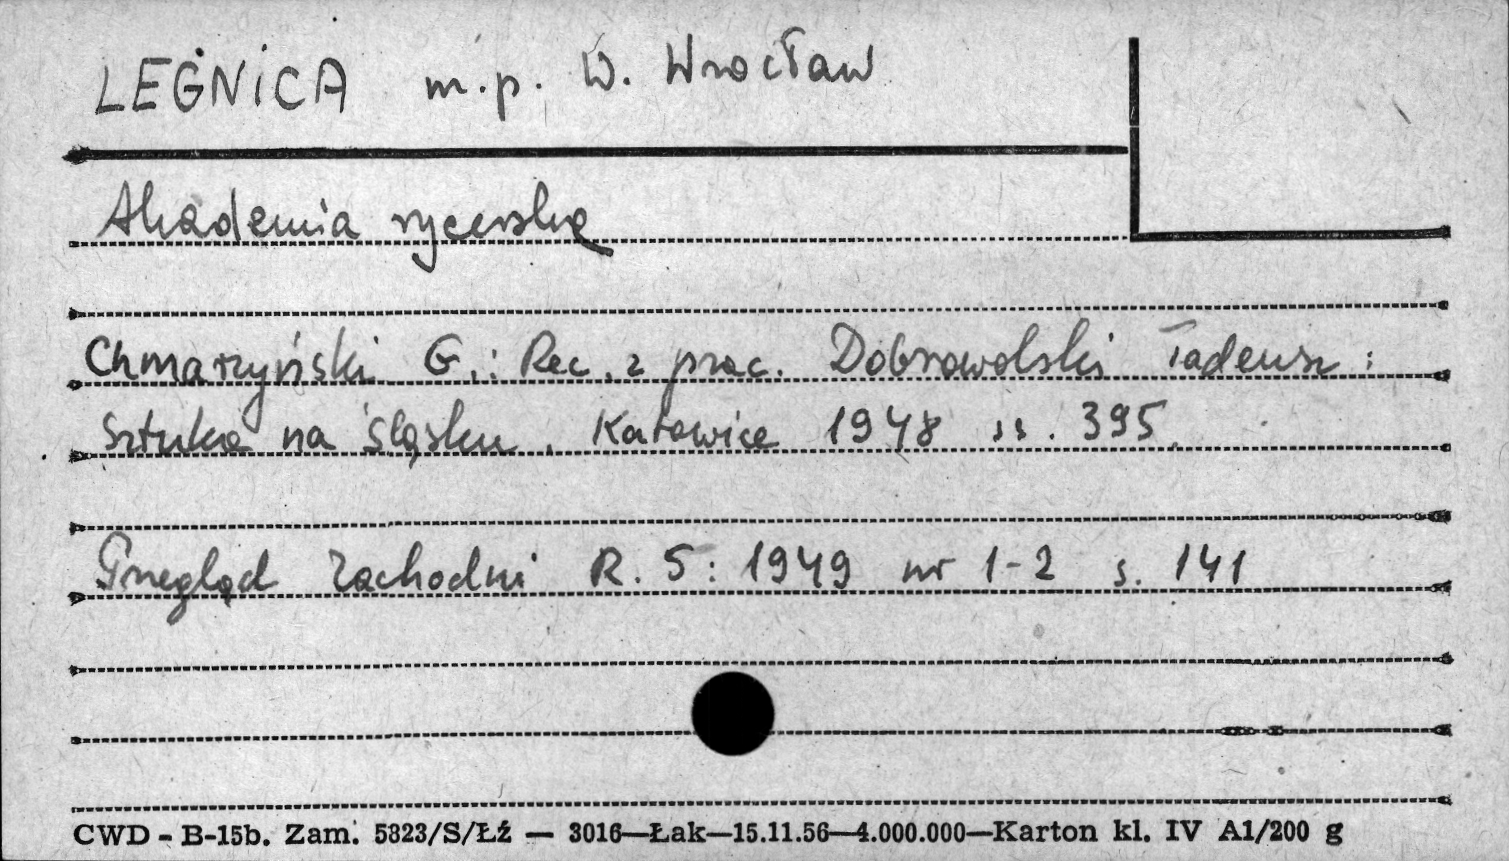 LEGNICA m.p. W. Wrocław
Akademia rycerska
Chmarzyński G.: Rec. z prac. Dobrowolski Tadeusz:
Sztuka na Śląsku. Katowice 1948 ss. 395.
Przegląd Zachodni R. 5: 1949 nr 1-2 s. 141
CWD - B-15b. Zam. 5823/S/Łź — 3016—Łak—15.11.56—4.000.000—Karton kl. IV A1/200 g